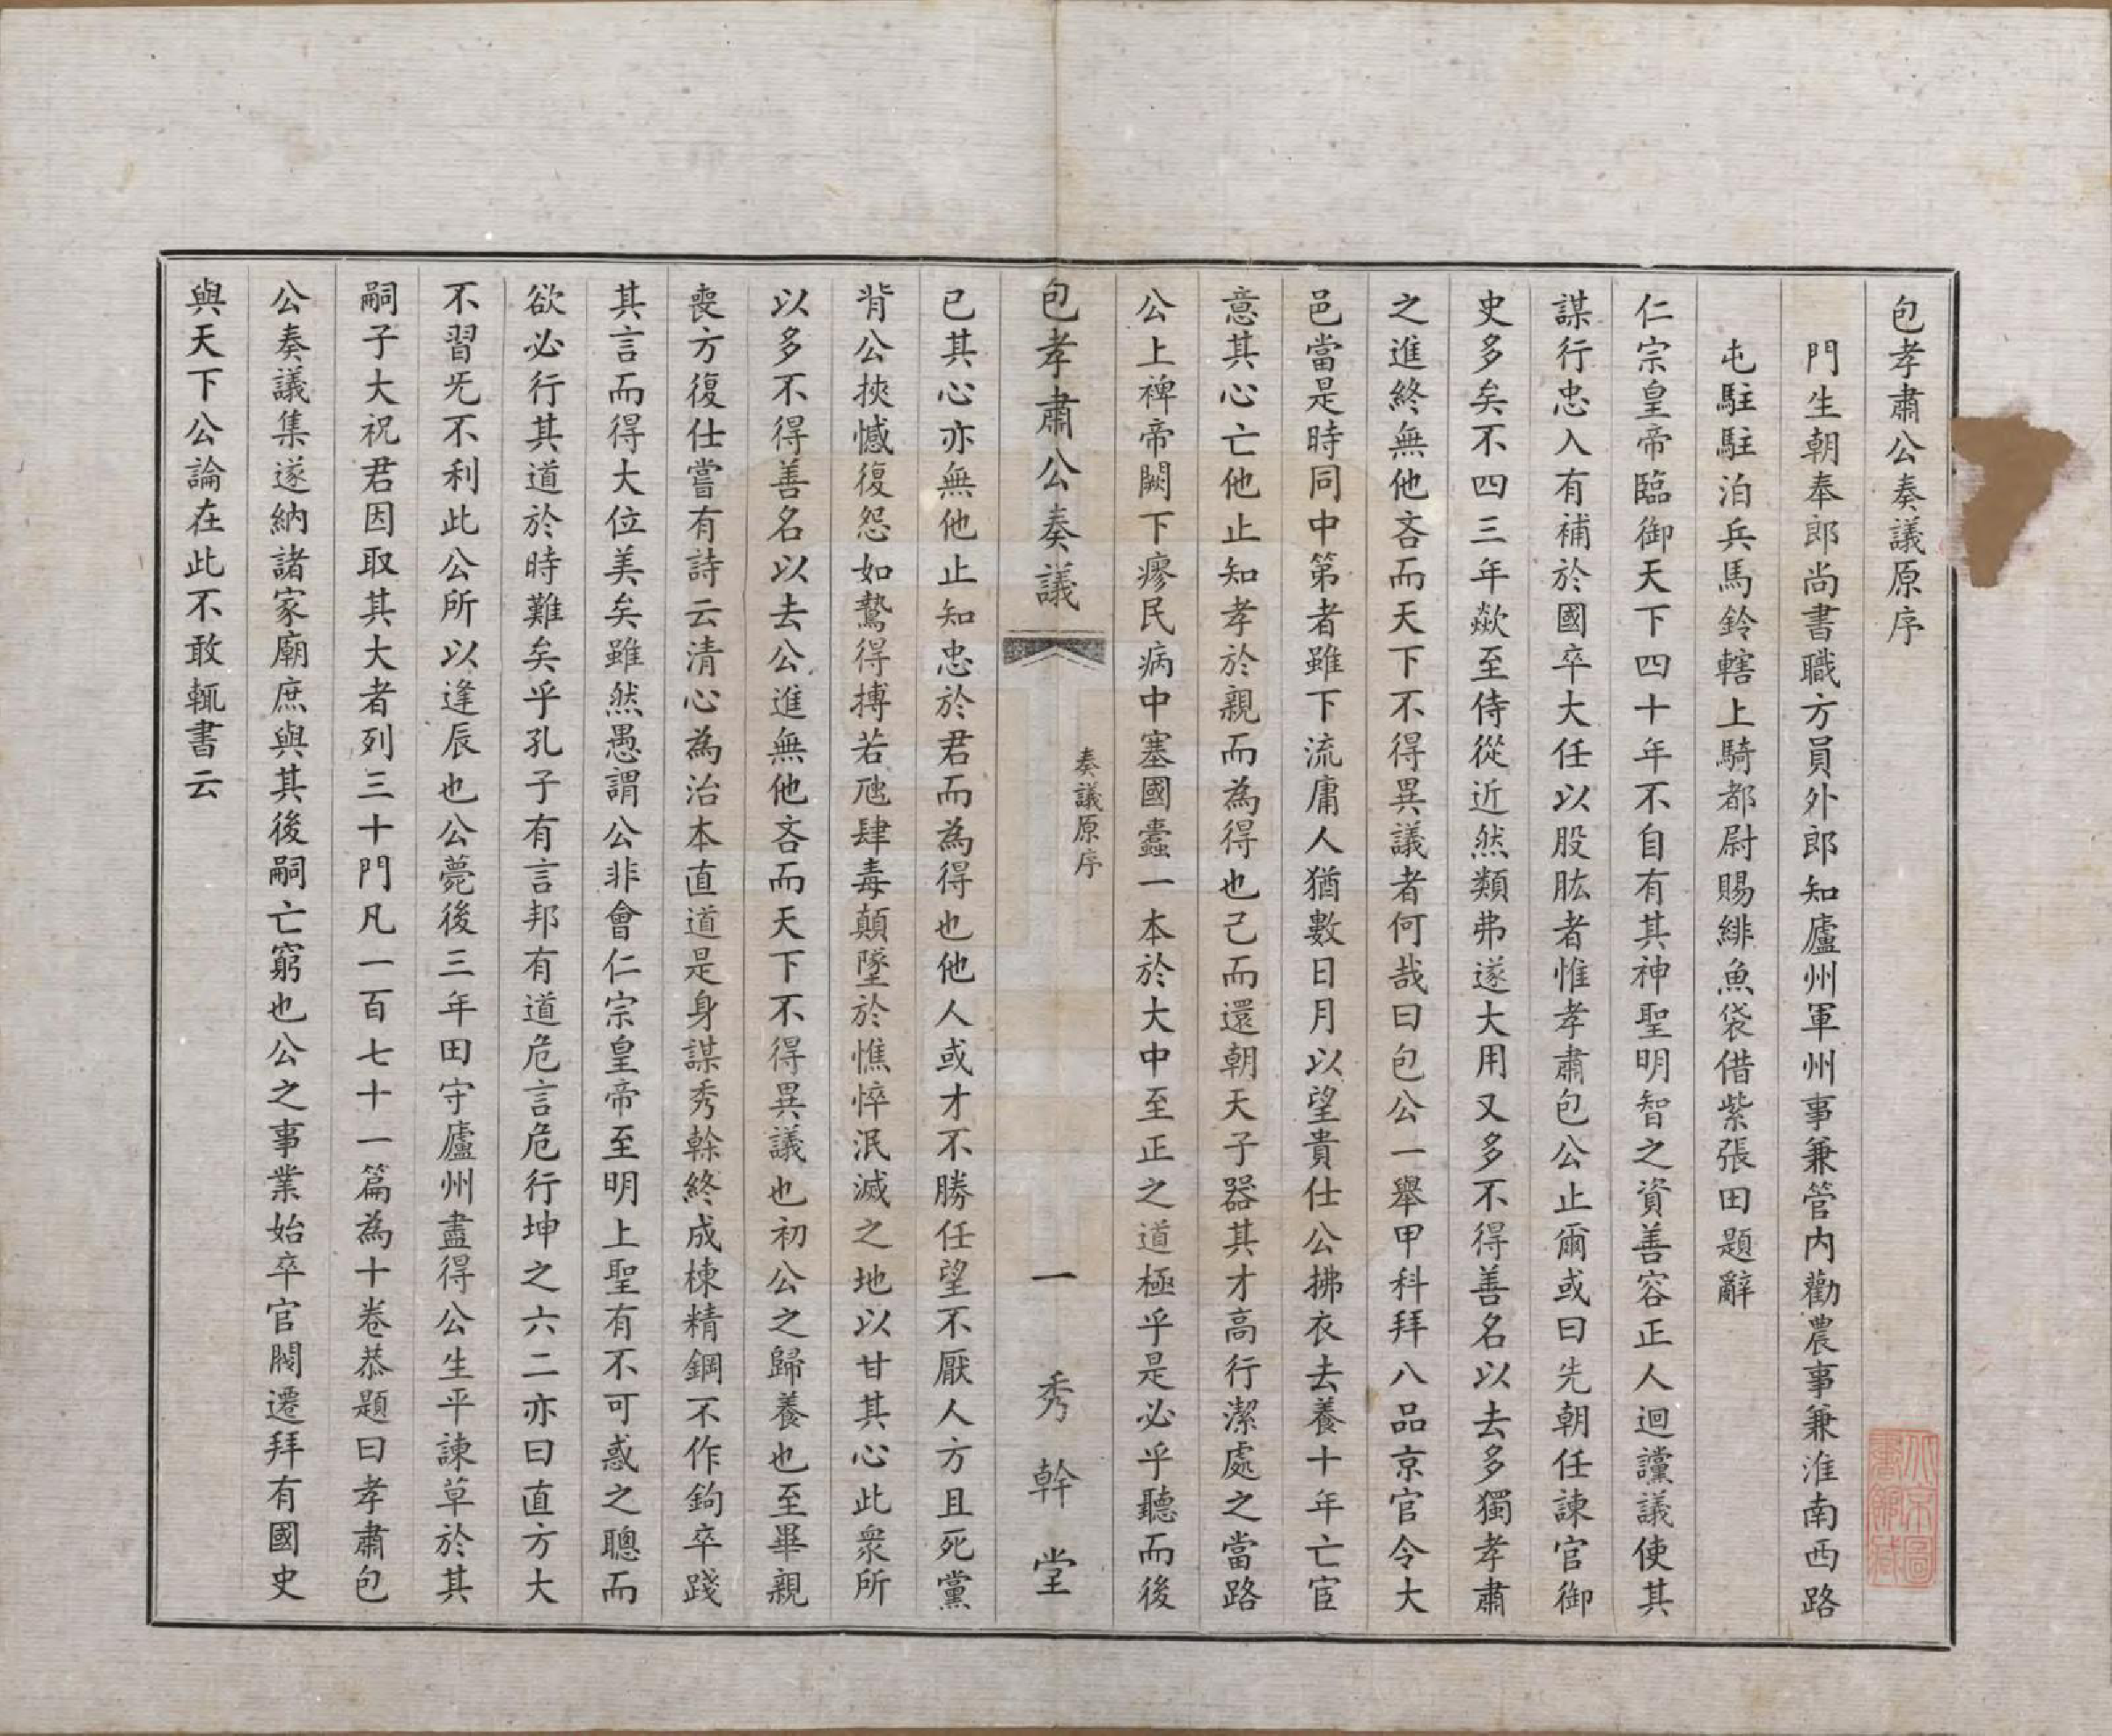 包孝肅公奏議原序
門生朝奉郎尚書職方員外郎知廬州軍州事兼管內勸農事兼淮南西路
屯駐駐泊兵馬鈐轄上騎都尉賜緋魚袋借紫張田題辭
仁宗皇帝臨御天下四十年不自有其神聖明智之資善容正人迴讜議使其
謀行忠入有補於國卒大任以股肱者惟孝肅包公止爾或曰先朝任諫官御
史多矣不四三年歘至侍從近然類弗遂大用又多不得善名以去多獨孝肅
之進終無他吝而天下不得異議者何哉曰包公一舉甲科拜八品京官令大
邑當是時同中第者雖下流庸人猶數日月以望貴仕公拂衣去養十年亡宦
意其心亡他止知孝於親而為得也己而還朝天子器其才高行潔處之當路
公上裨帝闕下瘳民病中塞國蠹一本於大中至正之道極乎是必乎聽而後
包孝肅公奏議
奏議原序
一
秀幹堂
已其心亦無他止知忠於君而為得也他人或才不勝任望不厭人方且死黨
背公挾憾復怨如鷙得搏若虺肆毒顛墜於憔悴泯滅之地以甘其心此衆所
以多不得善名以去公進無他吝而天下不得異議也初公之歸養也至畢親
喪方復仕嘗有詩云清心為治本直道是身謀秀榦終成棟精鋼不作鉤卒踐
其言而得大位美矣雖然愚謂公非會仁宗皇帝至明上聖有不可惑之聰而
欲必行其道於時難矣乎孔子有言邦有道危言危行坤之六二亦曰直方大
不習旡不利此公所以逢辰也公薨後三年田守廬州盡得公生平諫草於其
嗣子大祝君因取其大者列三十門凡一百七十一篇為十卷恭題曰孝肅包
公奏議集遂納諸家廟庶與其後嗣亡窮也公之事業始卒官閥遷拜有國史
與天下公論在此不敢輒書云